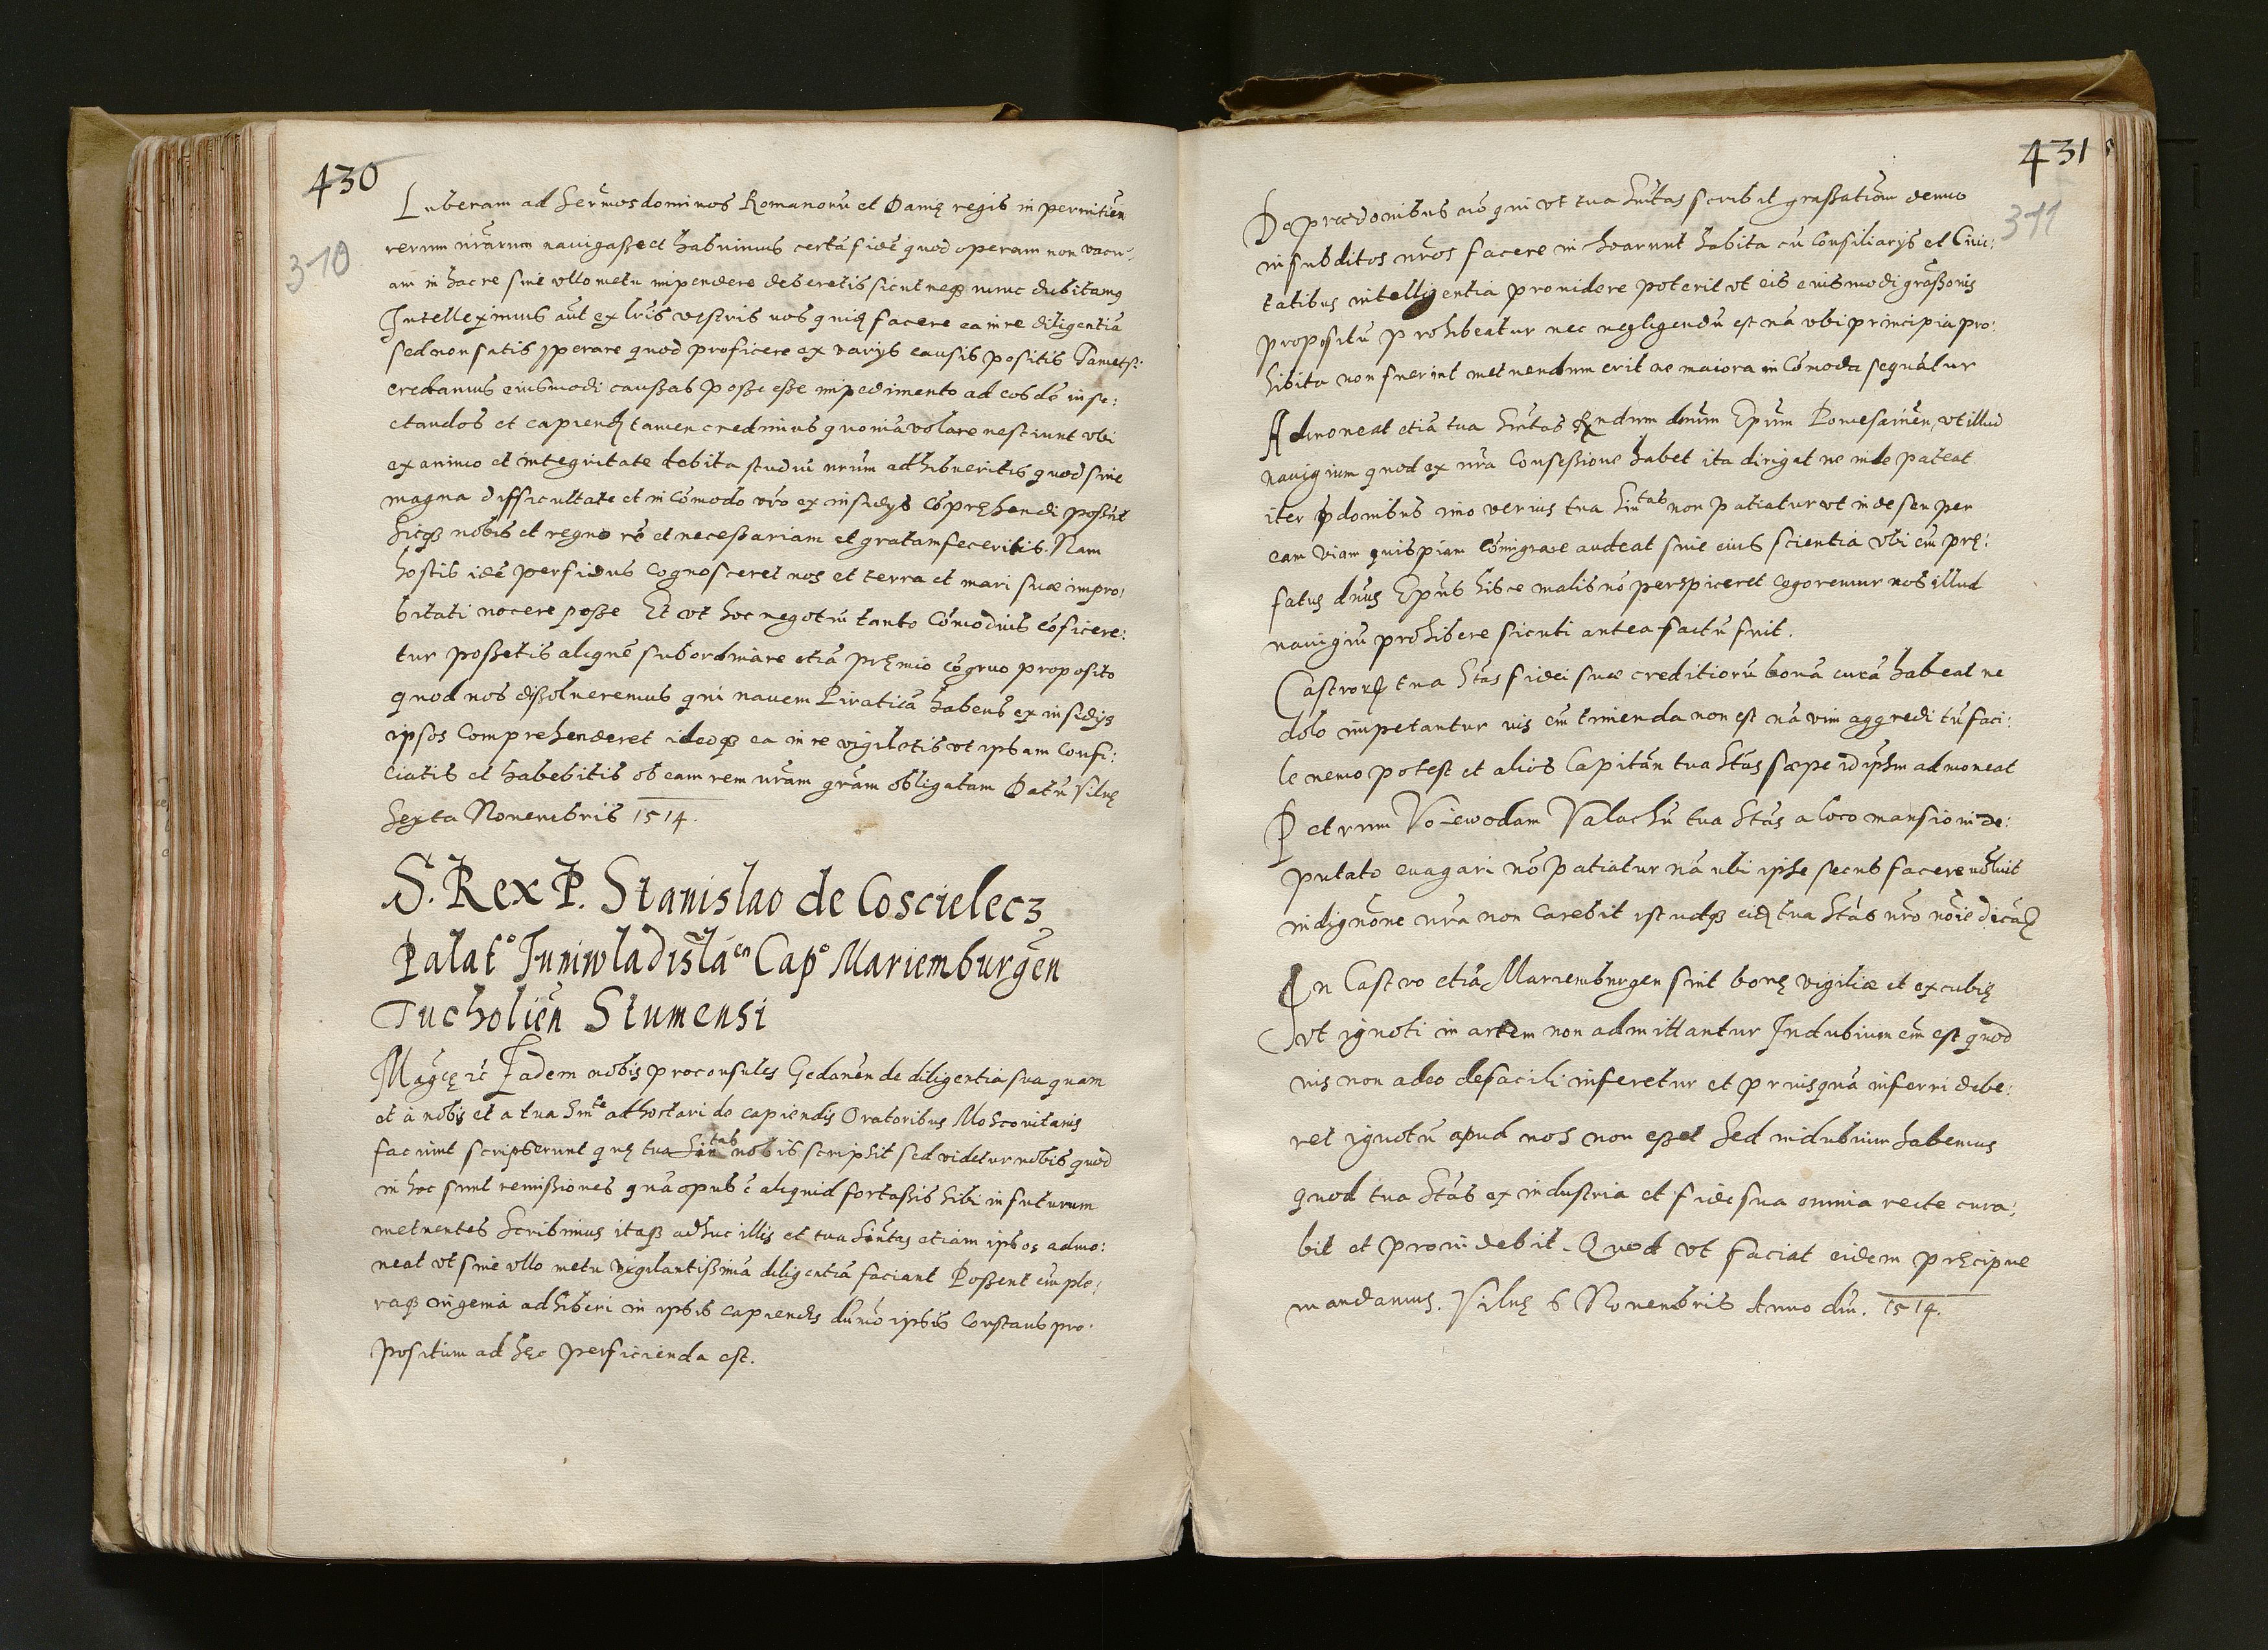 430
310
Luberam ad Sermos dominos Romanorū et Damę regis in pernitiēn
rerum nrārum nauigasse et habuimus certā fidē quod operam non vacu-
am in hac re sine vllo metu impendere deberetis sicut neqȝ nunc dubitamȝ
Intelleximus aūt ex lrīs vestris uos quidē facere ea in re diligentiā
sed non satis sperare quod proficere ex varijs causis positis Tametsi:
credamus eiusmodi caussas posse esse impedimento ad eosdē inse:
ctandos et capiendȝ tamen credimus quoniā volare nesciunt vbi
ex animo et integritate debita studiū urūm adhibueritis quod sine
magna difficultate et incōmodo vrō ex insidijs cōpręhendi possūt
Sicqȝ nobis et regno rē et necessariam et gratam feceritis. Nam
hostis idē perfidus cognosceret nos et terra et mari suæ impro:
bitati nocere posse Et vt hoc negotiū tanto cōmodius cōficere:
tur possetis aliquē subordinare etiā pręmio cōgruo proposito
quod nos dissolueremus qui nauem Piraticā habens ex insidijs
ipsos comprehenderet ideoqȝ ea in re vigiletis vt ipsam confi:
ciatis et habebitis ob eam rem nrām grām obligatam Datū Vilnę
Sexta Nouembris 1514.
S. Rex P. Stanislao de Coscielecz
Palat° Iuniwladislāen Cap° Mariemburgēn
Tucholiēn Stumensi
Magcę etc Eadem nobis proconsules Gedanēn de diligentia sua quam
et à nobis et a tua Sinte adhortari de capiendis Oratoribus Moscouitanis
faciunt scripserunt quę tua Sintas nobis scripsit sed videtur nobis quod
in hoc sunt remissiores quā opus ē aliquid fortassis sibi in futurum
metuentes Scribimus itaqȝ adhuc illis et tua Sintas etiam ipsos admo:
neat vt sine vllo metu vigilantissimā diligentiā faciant Possent eīm ple:
raqȝ ingenia adhiberi in ipsis capiendis dūmō ipsis constans pro-
positum ad hęc perficienda est.
431
311
De prædonibus aūo qui vt tua Sintas scribit grassatiōm denuo
in subditos nrōs facere inchoarunt habita cū consiliarijs et Ciui:
tatibus intelligentia prouidere poterit vt eis eiusmodi grassonis
propositū prohibeatur nec negligendū est nā vbi principia pro:
hibita non fuerint metuendum erit ne maiora incōmoda sequātur
Admoneat etiā tua Sintas Rndum dnum Epūm Pomesaniēn, vt illud
nauigium quod ex nrā concessione habet ita dirigat ne inde pateat
iter pdonibus imo verius tua Sintas non patiatur vt inde seu per
eam viam quispiam cōmigrare audeat sine eius scientia vbi eīm prę:
fatus dnus Epūs hisce malis nō perspiceret cogeremur nos illud
nauigiū prohibere sicuti antea factū fuit.
Castrorȝ tua Stas fidei suæ creditiorū bonā curā habeat ne
dolo impetantur uis eīm timenda non est nā vim aggredi tū faci:
le nemo potest et alios Capitān tua Stas sæpe id ipsum admoneat
Petrum Voiewodam Valachū tua Stas a loco mansioni de:
putato euagari nō patiatur nā ubi ipse secus facere uoluit
indignōne nrā non carebit istudqȝ eidȝ tua Stas nrō noīe dicāȝ
In Castro etiā Mariemburgen sint bonę vigiliæ et excubię
vt ignoti in artem non admittantur Indubium eīm est quod
uis non adeo defacili inferetur et priusquā inferri debe:
ret ignotū apud nos non esset Sed indubium habemus
quod tua Stas ex industria et fide sua omnia recte cura:
bit et prouidebit. Quod vt faciat eidem pręcipue
mandamus. Vilnę 6 Nouembris Anno dni. 1514.